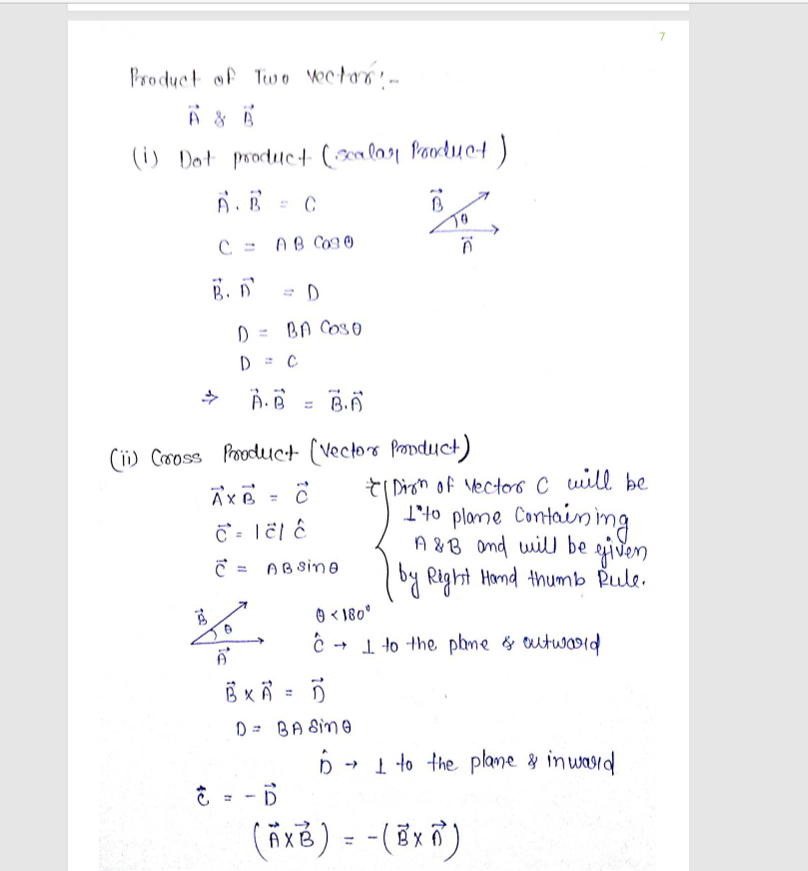 7
Product of Two Vector:-
A⃗ & B⃗
(i) Dot product (scalar Product)
A⃗ . B⃗ = C
B⃗
θ
A⃗
C = AB Cosθ
B⃗ . A⃗ = D
D = BA Cosθ
D = C
⇒ A⃗.B⃗ = B⃗.A⃗
(ii) Cross Product (Vector Product)
A⃗ x B⃗ = C⃗
C⃗ = |C⃗| Ĉ
C⃗ = AB sinθ
Dirⁿ of Vector C will be
⊥ʳ to plane Containing
A & B and will be given
by Right Hand thumb Rule.
B⃗
θ
A⃗
θ < 180°
Ĉ → ⊥ to the plane & outward
B⃗ x A⃗ = D⃗
D = BA Sinθ
D̂ → ⊥ to the plane & inward
C⃗ = - D⃗
(A⃗ x B⃗) = -(B⃗ x A⃗)